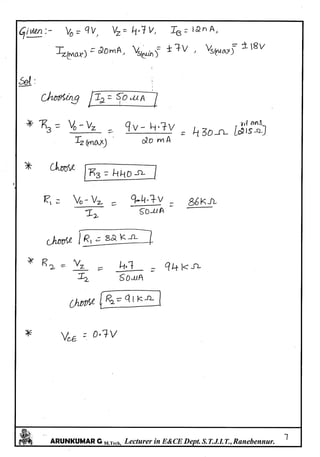 Given:- V₀ = 9V, V_Z = 4.7V, I_B = 12nA,
I_Z(max) = 20mA, V_S(min) = ±7V, V_S(max) = ±18V
Sol:
Choosing I₂ = 50μA
* R₃ = V₀-V_Z / I_Z(max) = 9V-4.7V / 20 mA = 430Ω [215Ω]
* Choose R₃ = 440Ω
R₁ = V₀-V_Z / I₂ = 9-4.7V / 50μA = 86KΩ
choose R₁ = 82KΩ
* R₂ = V_Z / I₂ = 4.7 / 50μA = 94KΩ
Choose R₂ = 91KΩ
* V_CE = 0.7V
ARUNKUMAR G M.Tech, Lecturer in E&CE Dept. S.T.J.I.T., Ranebennur. 7